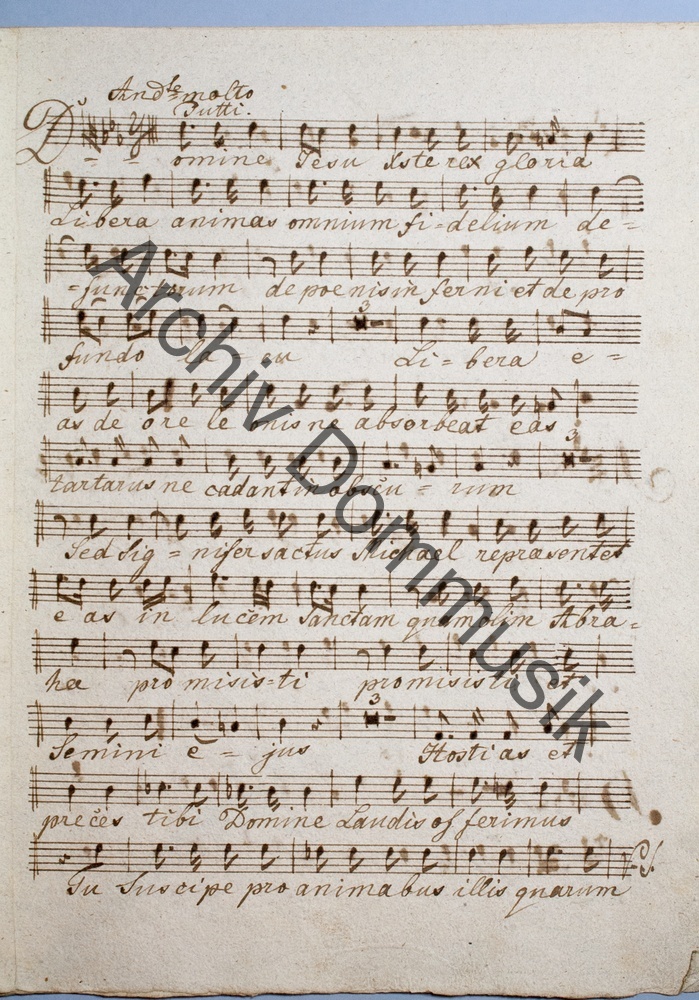 And.te molto
Tutti.
Domine Jesu Xste rex gloria
Libera animas omnium fi-delium de=
=func-torum de poenis in ferni et de pro
fundo la-cu 3 Li=bera e=
as de ore le onis ne absorbeat eas
tartarus ne cadant in obscu=rum 3
Sed Sig=nifer sactus Michael repraesentet
e as in lucem Sanctam quam olim Abra=
hae pro misis=ti promisisti et
Semini e=jus 3 Hosti as et
preces tibi Domine Laudis of ferimus
Tu Suscipe pro animabus illis quarum
Archiv Dommusik